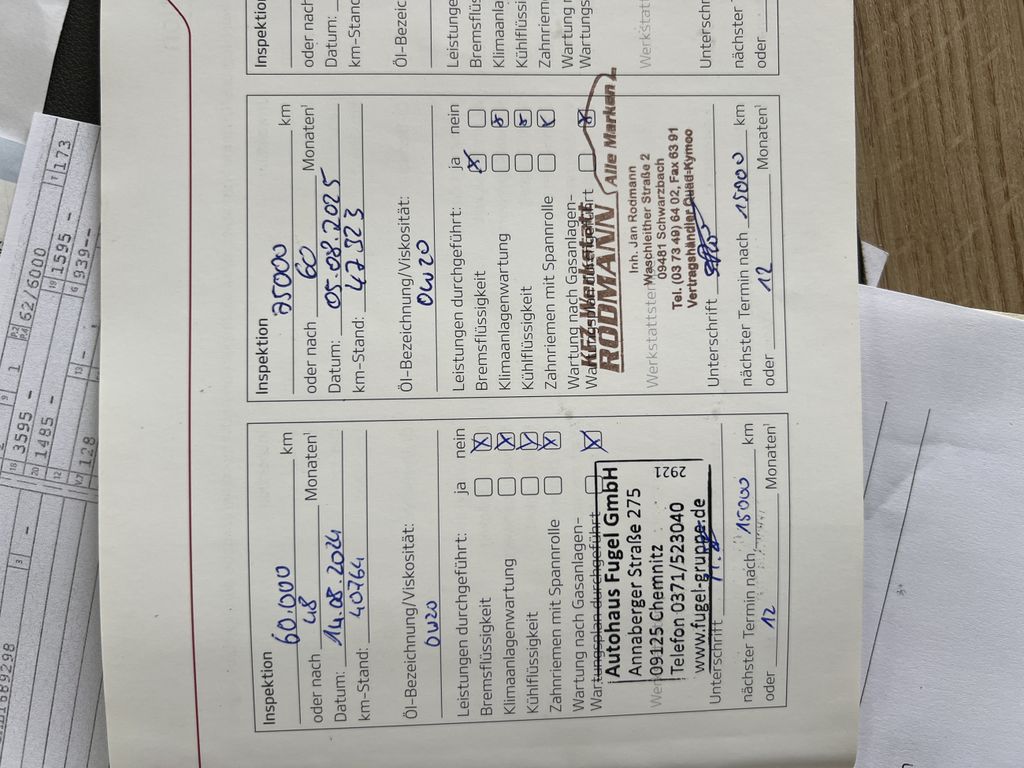 Inspektion
60.000 km
oder nach 48 Monaten¹
Datum: 14.08.2024
km-Stand: 40764
Öl-Bezeichnung/Viskosität:
0W20
Leistungen durchgeführt: ja nein
Bremsflüssigkeit
Klimaanlagenwartung
Kühlflüssigkeit
Zahnriemen mit Spannrolle
Wartung nach Gasanlagen-
Wartungsplan durchgeführt
Autohaus Fugel GmbH
Annaberger Straße 275
09125 Chemnitz
Telefon 0371/523040
www.fugel-gruppe.de
2921
Unterschrift
nächster Termin nach 15000 km
oder 12 Monaten¹
Inspektion
75000 km
oder nach 60 Monaten¹
Datum: 05.08.2025
km-Stand: 47323
Öl-Bezeichnung/Viskosität:
0W20
Leistungen durchgeführt: ja nein
Bremsflüssigkeit
Klimaanlagenwartung
Kühlflüssigkeit
Zahnriemen mit Spannrolle
Wartung nach Gasanlagen-
KFZ-Werkstatt
RODMANN Alle Marken
Inh. Jan Rodmann
Waschleither Straße 2
09481 Schwarzbach
Tel. (03 73 49) 64 02, Fax 63 91
Vertragshändler Quad-Kymco
Werkstattste
Unterschrift
nächster Termin nach 15000 km
oder 12 Monaten¹
Inspektion
oder nach
Datum:
km-Stand
Öl-Bezeic
Leistunge
Bremsflüs
Klimaanla
Kühlflüssi
Zahnrieme
Wartung n
Wartungs
Werkstatt
Unterschr
nächster
oder
18 3595 -
20 1485 -
P.2 P.4 62/6000
19 1595 -
T 173
V.7 128
G 939--
689298